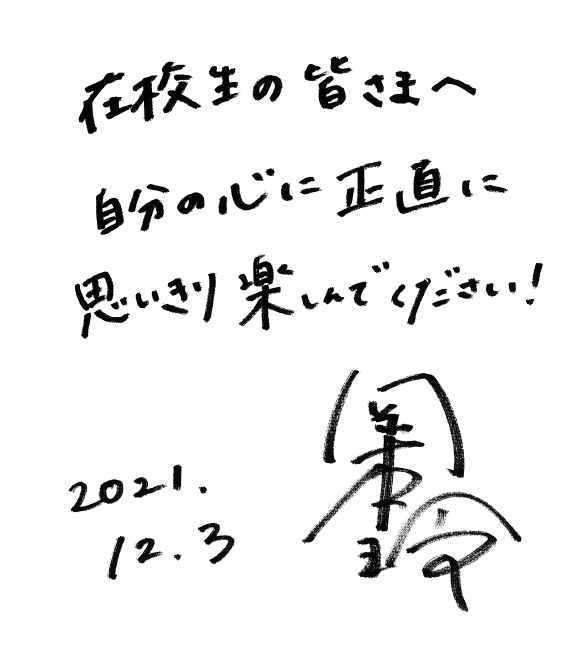 在校生の皆さまへ
自分の心に正直に
思いきり楽しんでください!
2021.
12.3